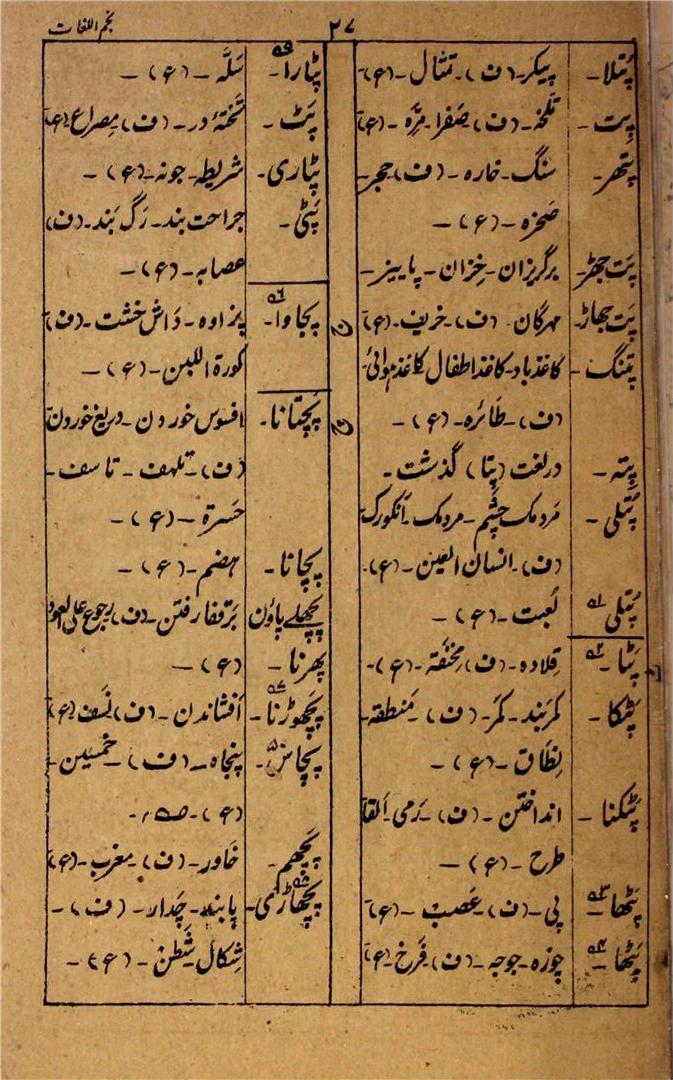 نجم اللغات
۲۷
پُتلا۔ پیکر۔ (ف)۔ تمثال۔ (ع)۔
پِت۔ تلخہ۔ (ف) صَفرا۔ مِرّہ۔ (ع)
پتّھر۔ سنگ۔ خارہ۔ (ف)۔ حجر۔
صخرہ۔ (ع)۔
پَت جھڑ۔ برگریزان۔ خزان۔ پاییز۔
پَت جھاڑ۔ مہرگان۔ (ف)۔ خریف۔ (ع)
پتنگ۔ کاغذ باد۔ کاغذ اطفال کاغذ ہوائی۔
(ف)۔ طائرہ۔ (ع)۔
پِتہ۔ در لغت (پِتا) گذشت۔
پُتلی۔ مردمک چشم۔ مردمک۔ انگورک
(ف)۔ انسان العین۔ (ع)۔
پُتلی ۵۱ لُعبت۔ (ع)۔
پَٹا۔ ۵۲ قِلادہ۔ (ف) مِخنَقہ۔ (ع)۔
پٹکا۔ کمربند۔ کمر۔ (ف)۔ مَنطقہ۔
نِطاق۔ (ع)۔
پٹکنا۔ انداختن۔ (ف)۔ رَمی۔ القا
طرح۔ (ع)۔
پٹھا۔ ۵۳ پی۔ (ف)۔ عَصَب۔ (ع)
پٹھا۔ ۵۴ چوزہ۔ جوجہ۔ (ف)۔ فَرخ۔ (ع)
پٹارا۔ ۵۵ سَلّہ۔ (ع)۔
پَٹ۔ تختۂ در۔ (ف)۔ مِصراع۔ (ع)
پٹاری۔ شریطہ۔ جونہ۔ (ع)۔
پَٹّی۔ جراحت بند۔ رَگ بَند۔ (ف)
عصابہ۔ (ع)۔
پجاوا۔ ۵۶ پزاوہ۔ دَاش خشت۔ (ف)
کورۃ اللبن۔ (ع)۔
پچتانا۔ افسوس خوردن۔ دریغ خوردن
(ف)۔ تلہف۔ تاسف۔
حَسرۃ۔ (ع)۔
پچانا۔ ہضم۔ (ع)۔
پچھلے پاؤن برقفا رفتن۔ (ف) رجوع علی العود
پھرنا۔ (ع)۔
پچھوڑنا۔ ۵۷ افشاندن۔ (ف) نَسف (ع)
پچاس۔ پنجاہ۔ (ف)۔ خمسین۔
(ع)۔
پچھم۔ خاور۔ (ف)۔ مغرب۔ (ع)
پچھاڑی۔ ۵۸ پابند۔ چدار۔ (ف)۔
شِکال شَطَن۔ (ع)۔